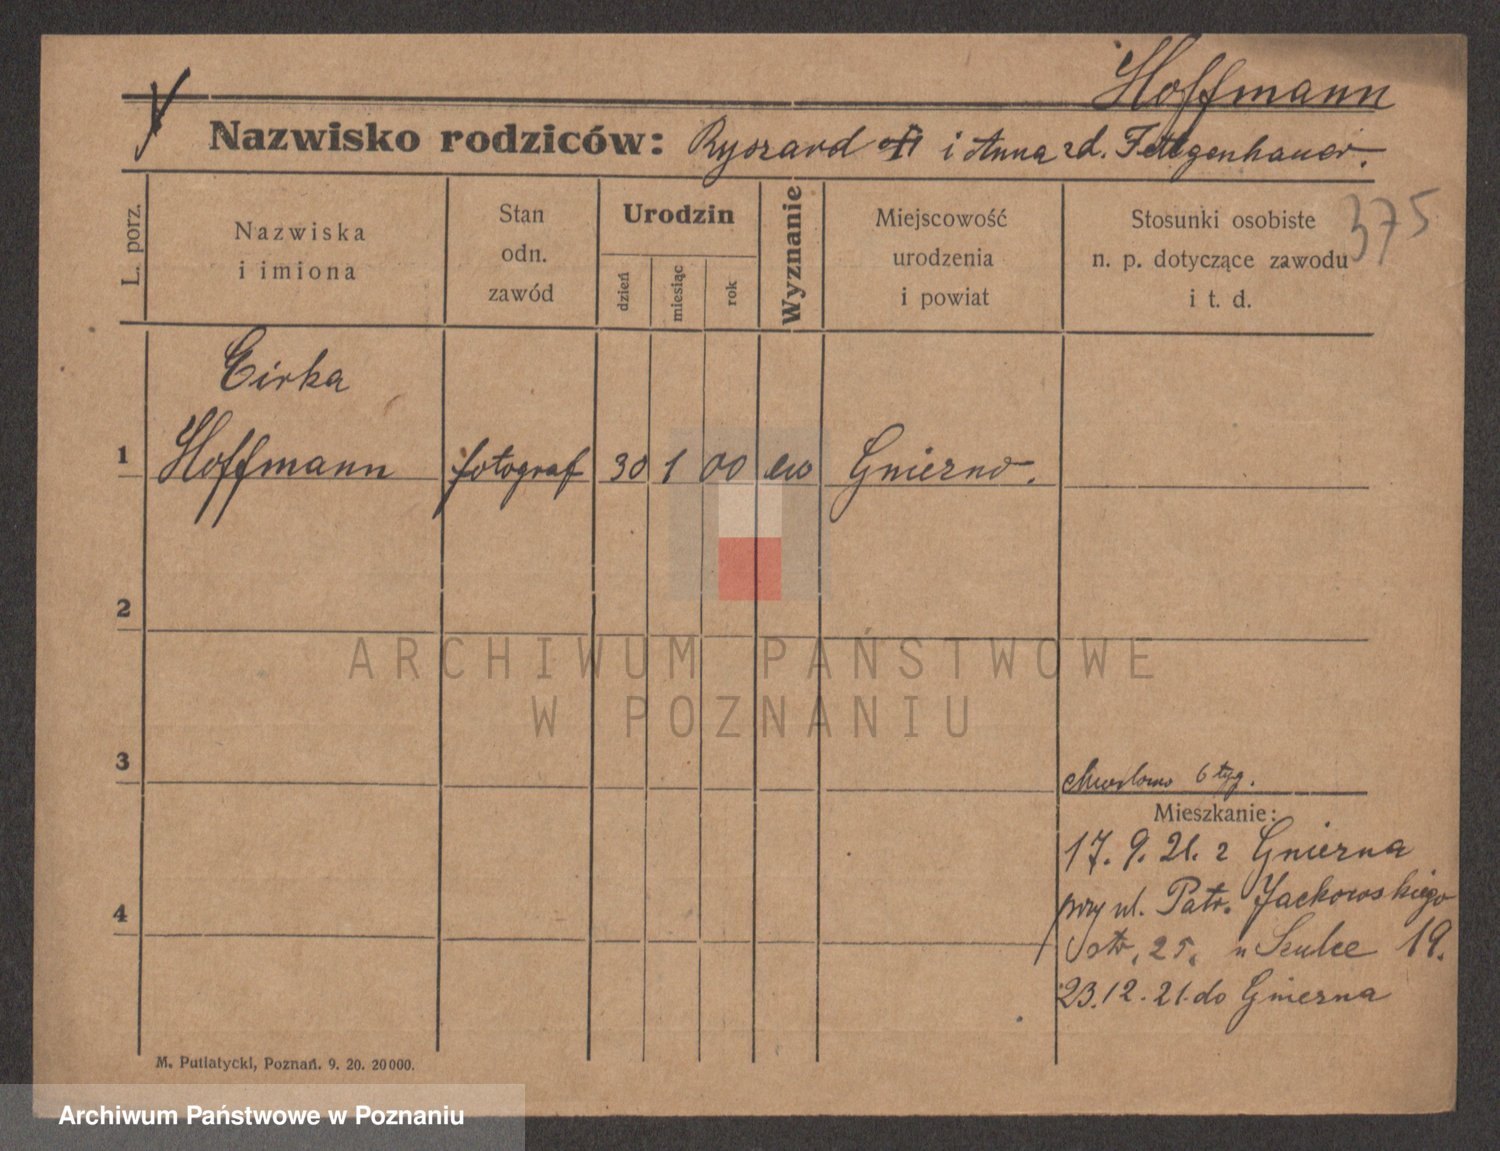 Hoffmann
Nazwisko rodziców: Ryszard i Anna zd. Fellgenhauer.
375
L. porz.
Nazwiska
i imiona
Stan
odn.
zawód
Urodzin
dzień
miesiąc
rok
Wyznanie
Miejscowość
urodzenia
i powiat
Stosunki osobiste
n. p. dotyczące zawodu
i t. d.
1
Hoffmann fotograf 30 1 00 ew Gniezno.
2
ARCHIWUM PAŃSTWOWE
W POZNANIU
3
chwilowo 6 tyg.
Mieszkanie:
17. 9. 21. z Gniezna
przy ul. Patr. Jackowskiego
25. u Szulce 19.
4
23. 12. 21. do Gniezna
M. Putiatycki, Poznań. 9. 20. 20000.
Archiwum Państwowe w Poznaniu